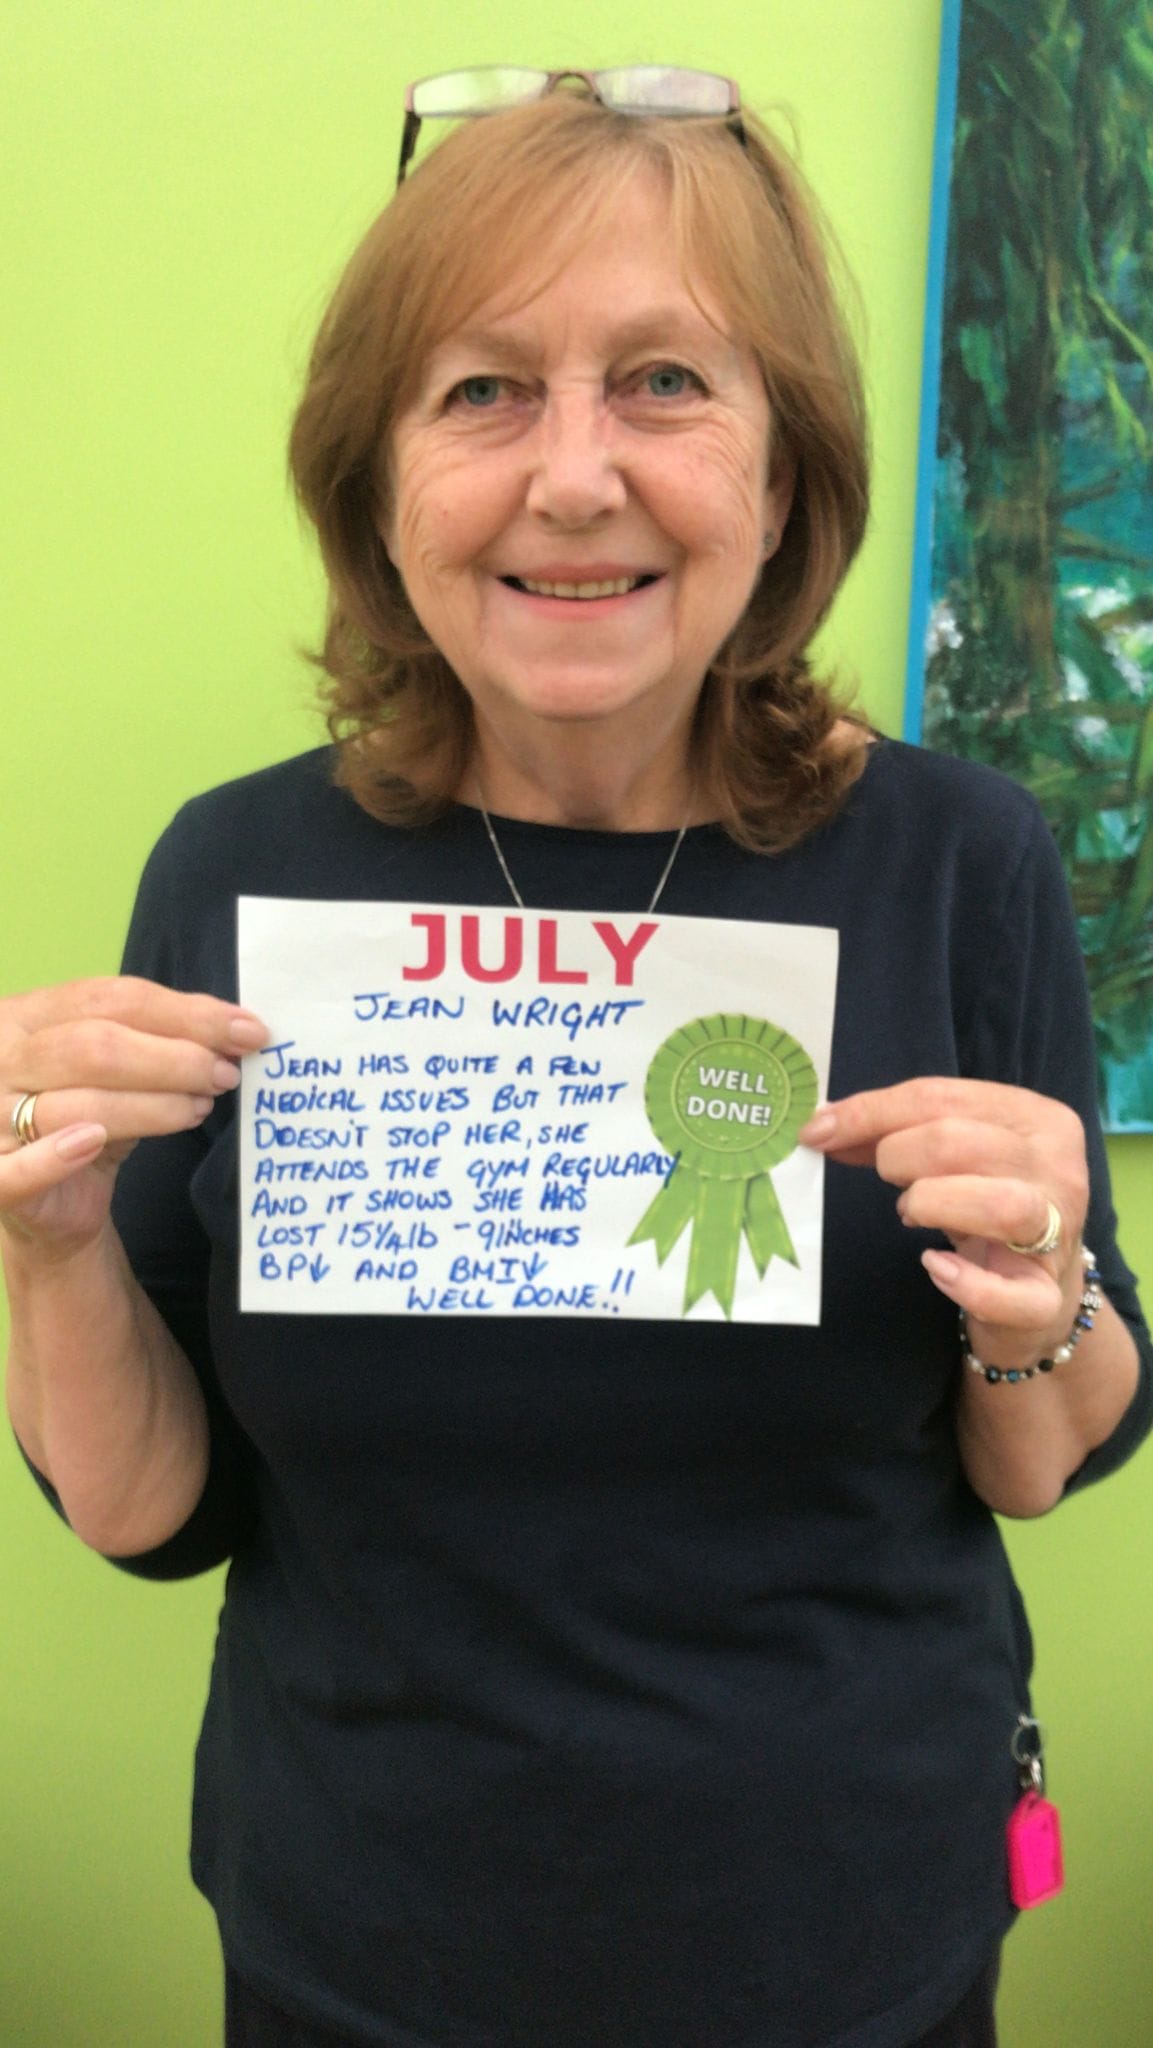 JULY
JEAN WRIGHT
JEAN HAS QUITE A FEW
MEDICAL ISSUES BUT THAT
DOESN'T STOP HER, SHE
ATTENDS THE GYM REGULARLY
AND IT SHOWS SHE HAS
LOST 15¼lb - 9INCHES
BP↓ AND BMI↓
WELL DONE.!!
WELL
DONE!